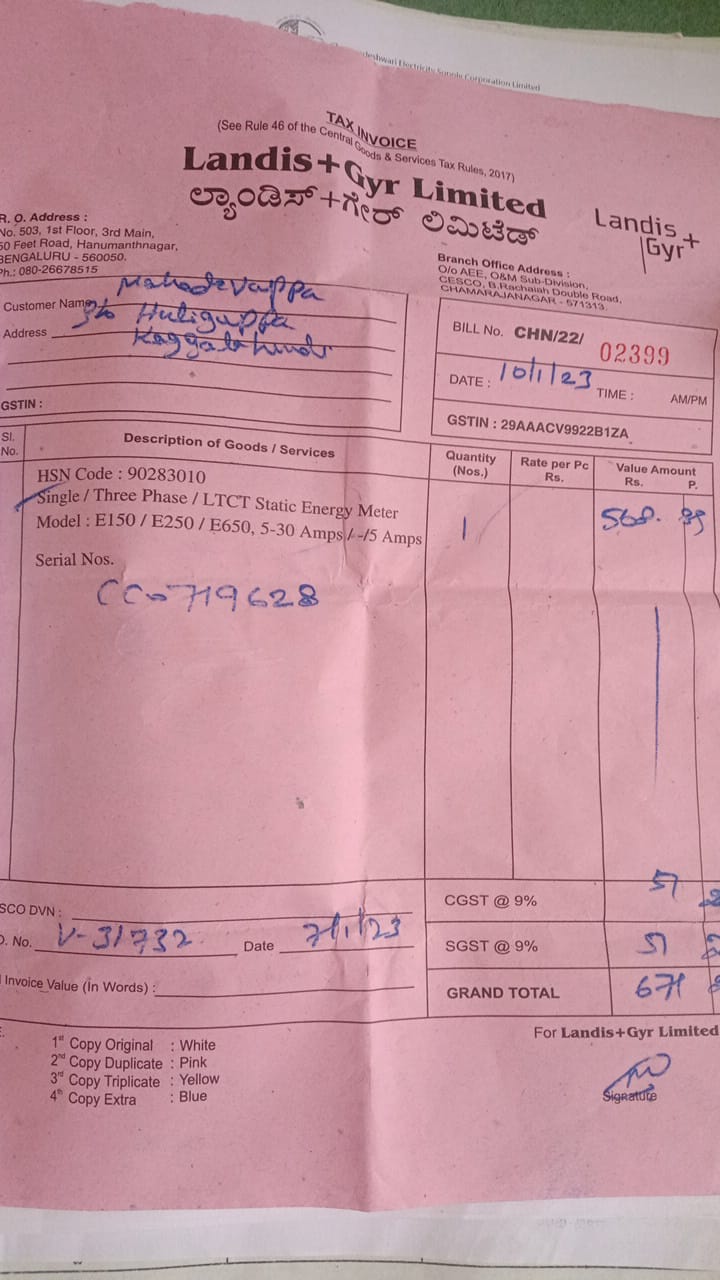 deshwari Electricity Supply Corporation Limited
TAX INVOICE
(See Rule 46 of the Central Goods & Services Tax Rules, 2017)
Landis+Gyr Limited
ಲ್ಯಾಂಡಿಸ್+ಗೇರ್ ಲಿಮಿಟೆಡ್
Landis+
Gyr+
R. O. Address :
No. 503, 1st Floor, 3rd Main,
50 Feet Road, Hanumanthnagar,
BENGALURU - 560050.
Ph.: 080-26678515
Branch Office Address :
O/o AEE, O&M Sub-Division,
CESCO, B.Rachaiah Double Road,
CHAMARAJANAGAR - 571313.
Customer Name Mahadevappa
Address S/o Huligappa
GSTIN :
BILL No. CHN/22/ 02399
DATE : 10/1/23 TIME : AM/PM
GSTIN : 29AAACV9922B1ZA
Sl. No. Description of Goods / Services Quantity (Nos.) Rate per Pc Rs. Value Amount Rs. P.
HSN Code : 90283010
Single / Three Phase / LTCT Static Energy Meter
Model : E150 / E250 / E650, 5-30 Amps / -/5 Amps 1 568.
Serial Nos.
CC0719628
CGST @ 9% 51
SCO DVN :
O. No. V-31732 Date 7/1/23
SGST @ 9% 51
Invoice Value (In Words) :
GRAND TOTAL 671
For Landis+Gyr Limited
1st Copy Original : White
2nd Copy Duplicate : Pink
3rd Copy Triplicate : Yellow
4th Copy Extra : Blue
Signature